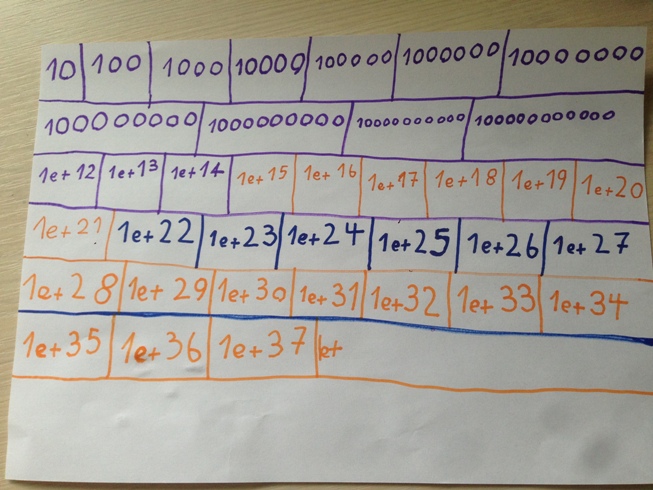 10 100 1000 10000 100000 1000000 10000000
100000000 1000000000 10000000000 100000000000
1e+12 1e+13 1e+14 1e+15 1e+16 1e+17 1e+18 1e+19 1e+20
1e+21 1e+22 1e+23 1e+24 1e+25 1e+26 1e+27
1e+28 1e+29 1e+30 1e+31 1e+32 1e+33 1e+34
1e+35 1e+36 1e+37 1e+